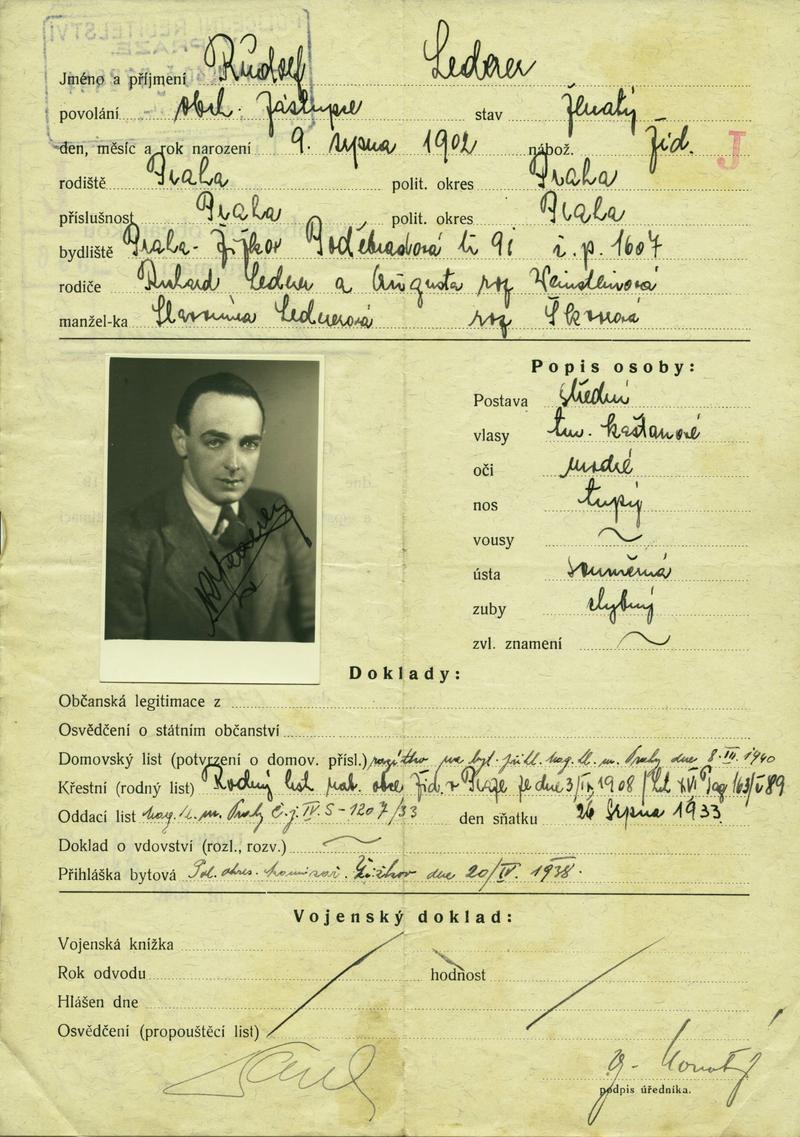 POLICEJNÍ ŘEDITELSTVÍ
PRAZE
Jméno a příjmení Rudolf Lederer
povolání obch. zástupce stav ženatý
den, měsíc a rok narození 9. srpna 1902 nábož. žid. J
rodiště Praha polit. okres Praha
příslušnost Praha polit. okres Praha
bydliště Praha - Žižkov Poděbradova 91 č.p. 1607
rodiče Richard Lederer a Augusta roz
manžel-ka Ledererová roz
Popis osoby:
Postava střední
vlasy tm. kaštanové
oči modré
nos tupý
vousy ~
ústa souměrná
zuby chybný
zvl. znamení ~
Doklady:
Občanská legitimace z
Osvědčení o státním občanství
Domovský list (potvrzení o domov. přísl.) mag. hl. m. Prahy dne 8. III. 1940
Křestní (rodný list) Rodný list náb. obce žid. v Praze ze dne 1908
Oddací list mag. hl. m. Prahy č.j. IV. S - 1207/33 den sňatku 26 srpna 1933
Doklad o vdovství (rozl., rozv.) ~
Přihláška bytová Pol. okres. komisař. Žižkov dne 20/IV. 1938.
Vojenský doklad:
Vojenská knížka
Rok odvodu hodnost
Hlášen dne
Osvědčení (propouštěcí list)
podpis úředníka.